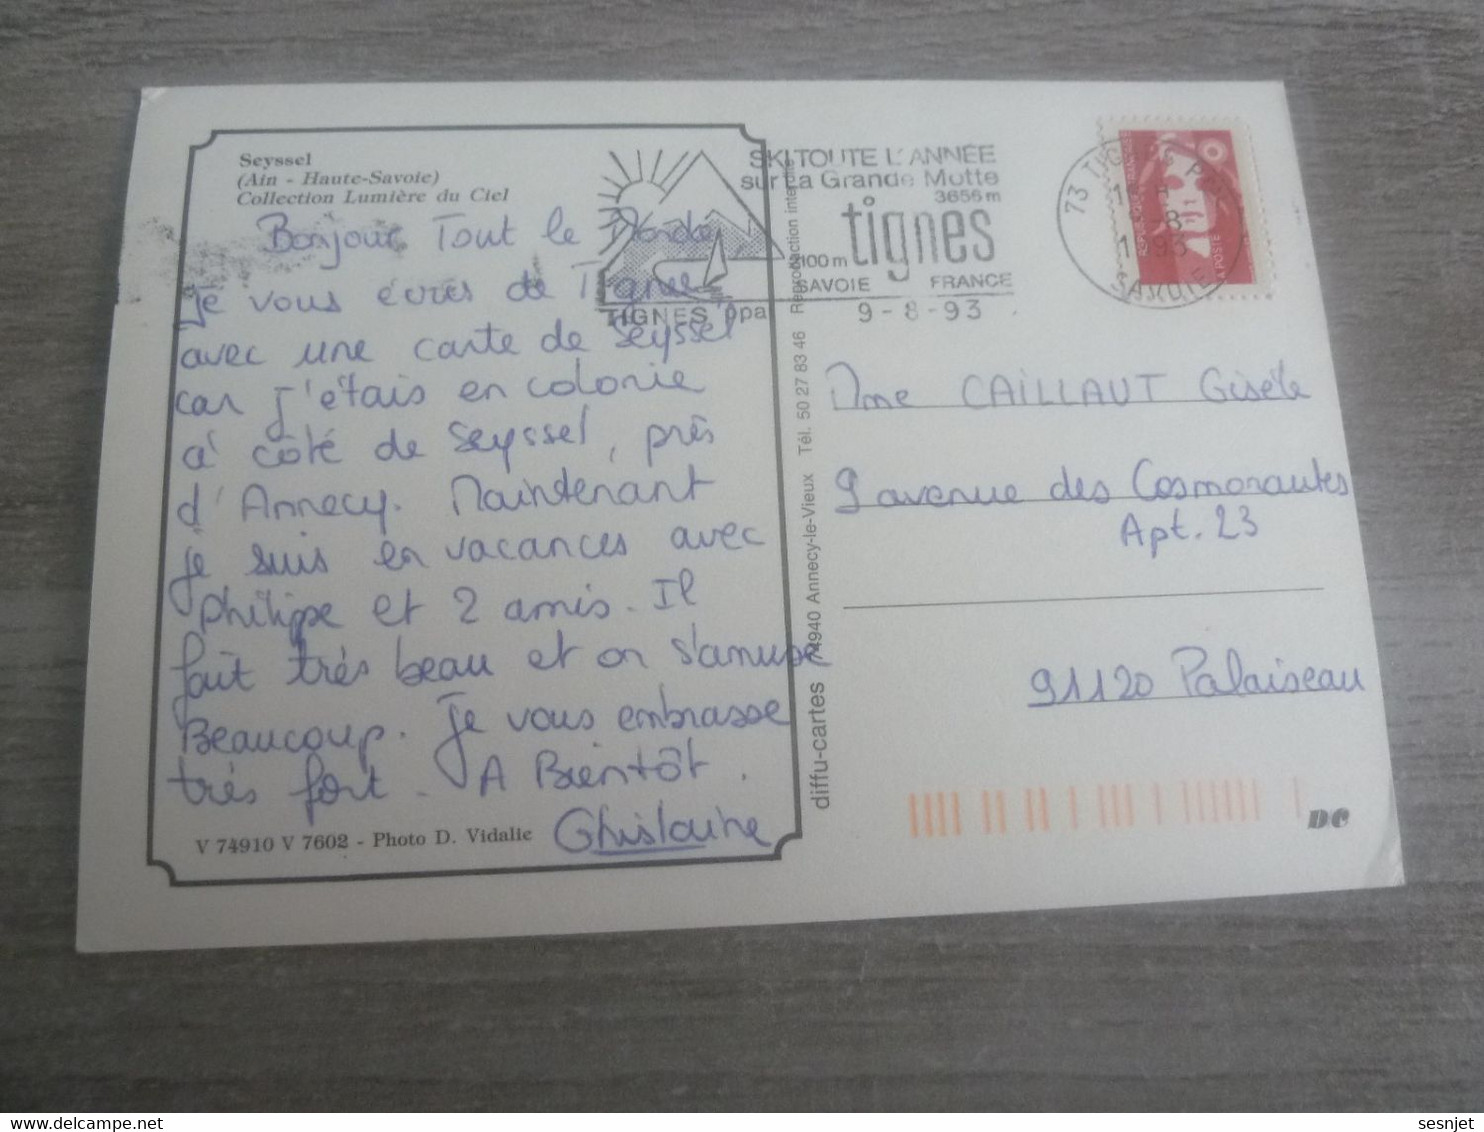 Seyssel
(Ain - Haute-Savoie)
Collection Lumière du Ciel
Bonjour Tout le Monde
Je vous écris de Tignes
avec une carte de "Seyssel"
car j'étais en colonie
à côté de Seyssel, près
d'Annecy. Maintenant
je suis en vacances avec
Philippe et 2 amis. Il
fait très beau et on s'amuse
Beaucoup. Je vous embrasse
très fort. A Bientôt.
Ghislaine
V 74910 V 7602 - Photo D. Vidalie
diffu-cartes 74940 Annecy-le-Vieux Tél. 50 27 83 46 Reproduction interdite
SKI TOUTE L'ANNÉE
sur La Grande Motte
3656 m
tignes
2100 m
SAVOIE FRANCE
TIGNES ppal
9-8-93
73 TIGNES PPAL
-8
1993
SAVOIE
LA POSTE
Mme CAILLAUT Gisèle
9 avenue des Cosmonautes
Apt. 23
91120 Palaiseau
DC
sesnjet